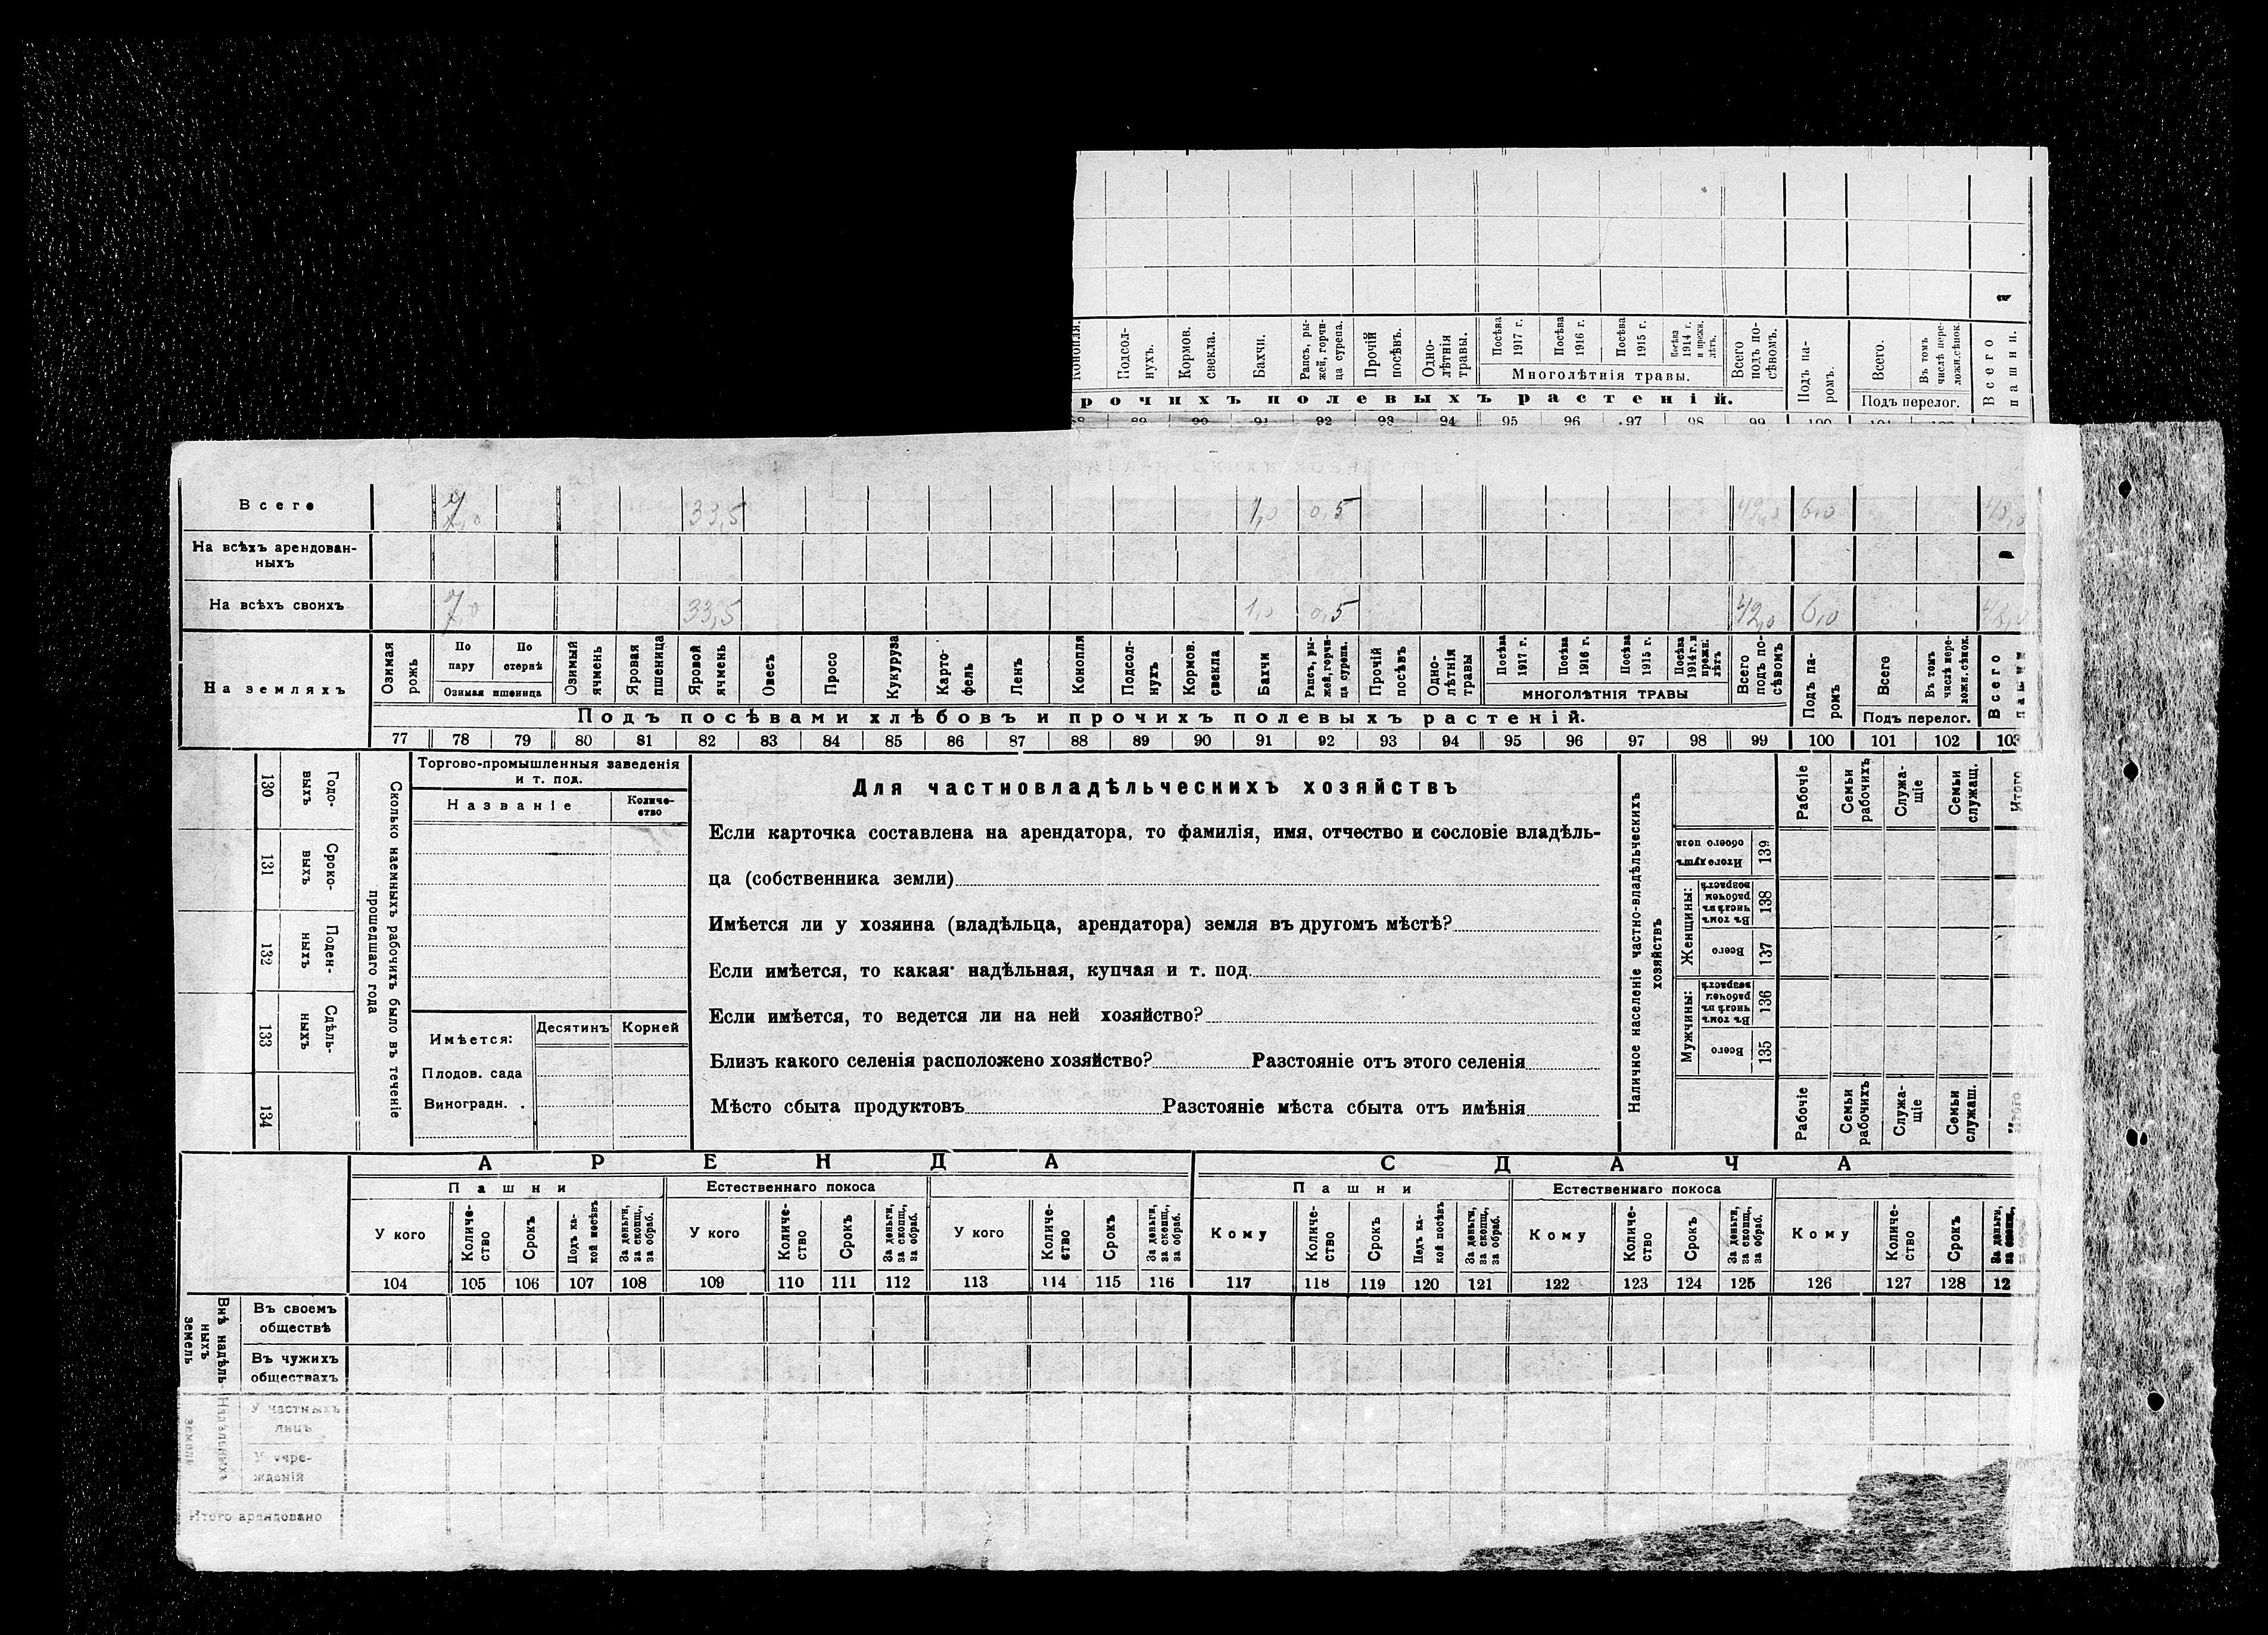 Подсол-
нухъ.
Кормов.
свекла.
Бахчи.
Рапсъ, ры-
жей, горчи-
ца сурепа.
Прочій
посѣвъ.
Одно-
лѣтнія
травы.
Посѣва
1917 г.
Посѣва
1916 г.
Посѣва
1915 г.
Посѣва
1914 г.
и прежн.
лѣтъ.
Многолѣтнія травы.
Всего
подъ по-
сѣвомъ.
Подъ па-
ромъ.
Всего.
Въ томъ
числѣ пере-
ложн.сѣнок.
Подъ перелог.
Всего
пашни.
рочихъ полевыхъ растеній.
95 96 97 98 99
Всего 7,0 33,5 1,0 0,5 42,0 6,0 48,0
На всѣхъ арендован-
ныхъ
На всѣхъ своихъ 7,0 33,5 1,0 0,5 42,0 6,0 48,0
На земляхъ
Озимая
рожь
По
пару
По
стернѣ
Озимая пшеница
Озимый
ячмень
Яровая
пшеница
Яровой
ячмень
Овесъ
Просо
Кукуруза
Карто-
фель
Ленъ
Конопля
Подсол-
нухъ
Кормов.
свекла
Бахчи
Рапсъ, ры-
жей, горчи-
ца сурепа.
Прочій
посѣвъ
Одно-
лѣтнія
травы
Посѣва
1917 г.
Посѣва
1916 г.
Посѣва
1915 г.
Посѣва
1914 г. и
прежн.
лѣтъ
МНОГОЛѢТНІЯ ТРАВЫ
Всего
подъ по-
сѣвомъ
Подъ па-
ромъ
Всего
Въ томъ
числѣ пере-
ложн. сѣнок.
Подъ перелог.
Всего
Подъ посѣвами хлѣбовъ и прочихъ полевыхъ растеній.
77 78 79 80 81 82 83 84 85 86 87 88 89 90 91 92 93 94 95 96 97 98 99 100 101 102 103
130 Годо-
выхъ
131 Сроко-
выхъ
132 Поден-
ныхъ
133 Сдѣль-
ныхъ
134
Сколько наемныхъ рабочихъ было въ теченіе
прошедшаго года
Торгово-промышленныя заведенія
и т. под.
Названіе
Количе-
ство
Имѣется:
Десятинъ
Корней
Плодов. сада
Виноградн. .
Для частновладѣльческихъ хозяйствъ
Если карточка составлена на арендатора, то фамилія, имя, отчество и сословіе владѣль-
ца (собственника земли)
Имѣется ли у хозяина (владѣльца, арендатора) земля въ другомъ мѣстѣ?
Если имѣется, то какая· надѣльная, купчая и т. под.
Если имѣется, то ведется ли на ней хозяйство?
Близъ какого селенія расположено хозяйство? Разстояніе отъ этого селенія
Мѣсто сбыта продуктовъ Разстояніе мѣста сбыта отъ имѣнія
Наличное населеніе частно-владѣльческихъ
хозяйствъ
Рабочіе
Семьи
рабочихъ
Служа-
щіе
Семьи
служащ.
Итого
Итого душъ
обоего пола
139
Женщины:
Въ томъ
числѣ въ
рабочемъ
возрастѣ
138
Всего
137
Мужчины:
Въ томъ
числѣ въ
рабочемъ
возрастѣ
136
Всего
135
Рабочіе
Семьи
рабочихъ
Служа-
щіе
Семьи
служащ.
АРЕНДА
СДАЧА
Пашни
Естественнаго покоса
Пашни
Естественнаго покоса
У кого
Количе-
ство
Срокъ
Подъ ка-
кой посѣвъ
За деньги,
за скопщ.,
за обраб.
У кого
Количе-
ство
Срокъ
За деньги,
за скопщ.,
за обраб.
У кого
Количе-
ство
Срокъ
За деньги,
за скопщ.,
за обраб.
Кому
Количе-
ство
Срокъ
Подъ ка-
кой посѣвъ
За деньги,
за скопщ.,
за обраб.
Кому
Количе-
ство
Срокъ
За деньги,
за скопщ.,
за обраб.
Кому
Количе-
ство
Срокъ
За деньги,
104 105 106 107 108 109 110 111 112 113 114 115 116 117 118 119 120 121 122 123 124 125 126 127 128 12
Внѣ надѣль-
ныхъ
земель
Въ своемъ
обществѣ
Въ чужихъ
обществахъ
Надѣльныхъ
земель
У частныхъ
лицъ
У учре-
жденій
Итого арендовано